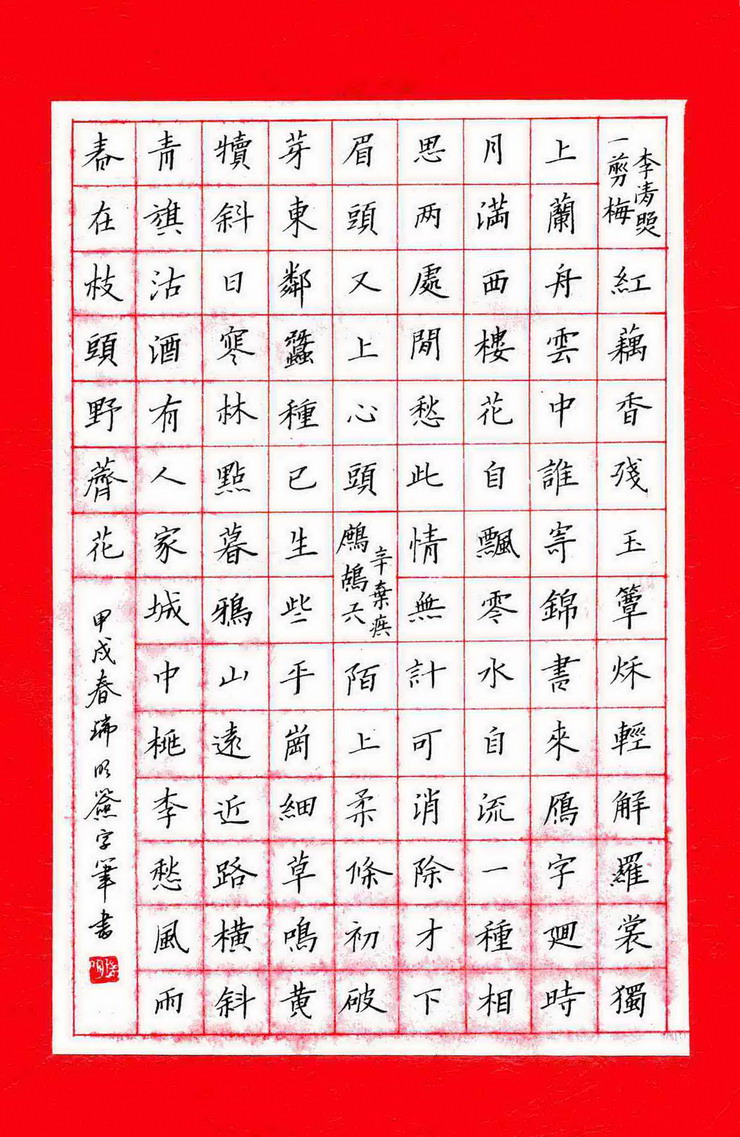 李清照
一剪梅
紅藕香殘玉簟秋輕解羅裳獨
上蘭舟雲中誰寄錦書來鴈字廻時
月滿西樓花自飄零水自流一種相
思两處閒愁此情無計可消除才下
眉頭又上心頭
辛棄疾
鷓鴣天
陌上柔條初破
芽東鄰蠶種已生些平崗細草鳴黃
犢斜日寒林點暮鴉山遠近路橫斜
青旗沽酒有人家城中桃李愁風雨
春在枝頭野薺花
甲戌春瑞明簽字筆書